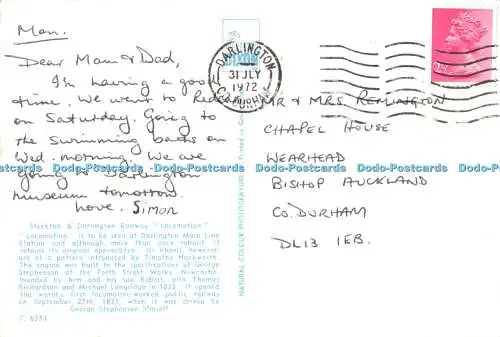 Mon.
Dear Mom & Dad,
I'm having a good
time. We went to
on Saturday. Going to
the Swimming baths on
Wed. morning. We are
going to Darlington
museum tomorrow.
Love. Simon
DARLINGTON
31 JLY
1972
CO. DURHAM
MR & MRS. REMLINGTON
CHAPEL HOUSE
WEARHEAD
BISHOP AUCKLAND
CO. DURHAM
DL13 1EB.
Stockton & Darlington Railway "Locomotion"
"Locomotion" is to be seen at Darlington Main Line
Station and although more than once rebuilt, it
retains its original appearance. Its wheels, however,
are of a pattern introduced by Timothy Hackworth.
The engine was built to the specifications of George
Stephenson at the Forth Street Works, Newcastle,
founded by him and his son Robert, also Thomas
Richardson and Michael Longridge in 1823. It opened
the world's first locomotive-worked public railway
on September 27th, 1825 when it was driven by
George Stephenson himself
NATURAL COLOUR PHOTOGRAPH
Printed in
Dodo-Postcards Dodo-Postcards Dodo-Postcards Dodo-Postcards Dodo-Postcards